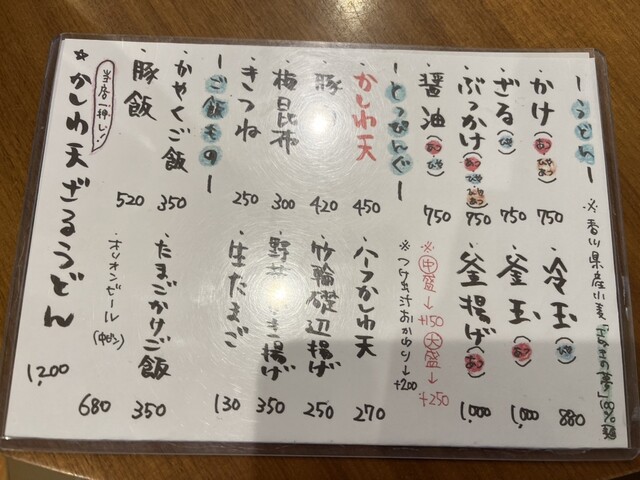 ーうどんー
※香川県産小麦「さぬきの夢」100%麺
かけ(あつ ひや) 750
ざる(ひや) 750
ぶっかけ(あつ ひや) 750
醤油(あつ ひや) 750
冷玉(ひや) 880
釜玉(あつ) 1,000
釜揚げ(あつ) 1,000
※中盛→+150 大盛→+250
※つけ出汁おかわり→+200
ーとっぴんぐー
かしわ天 450
豚 420
梅昆布 300
きつね 250
ハーフかしわ天 270
竹輪磯辺揚げ 250
揚げ 350
生たまご 130
ーご飯ものー
かやくご飯 350
豚飯 520
たまごかけご飯 350
オリオンビール(中ビン) 680
当店一押し!
☆かしわ天ざるうどん 1,200